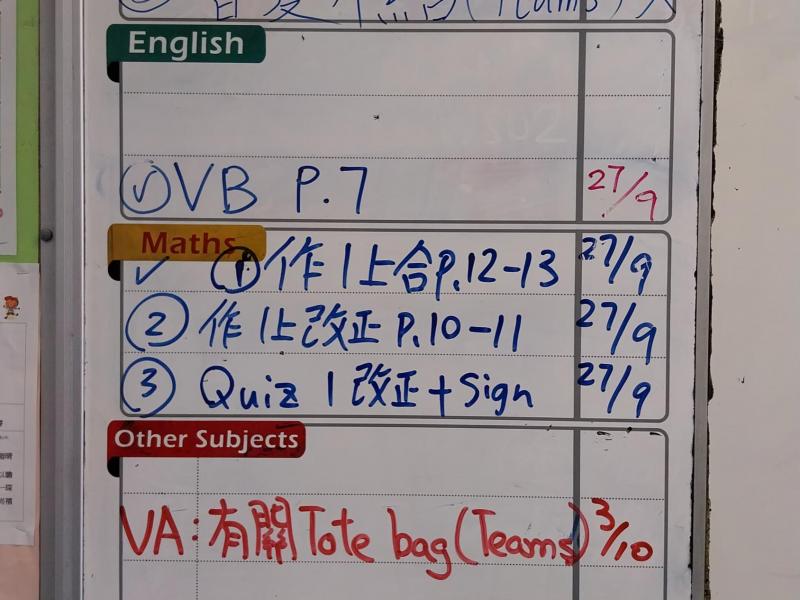 English
① VB P.7 27/9
Maths
✓ ① 作1上合P.12-13 27/9
② 作1上改正 P.10-11 27/9
③ Quiz 1 改正+Sign 27/9
Other Subjects
VA: 有關Tote bag(Teams) 3/10